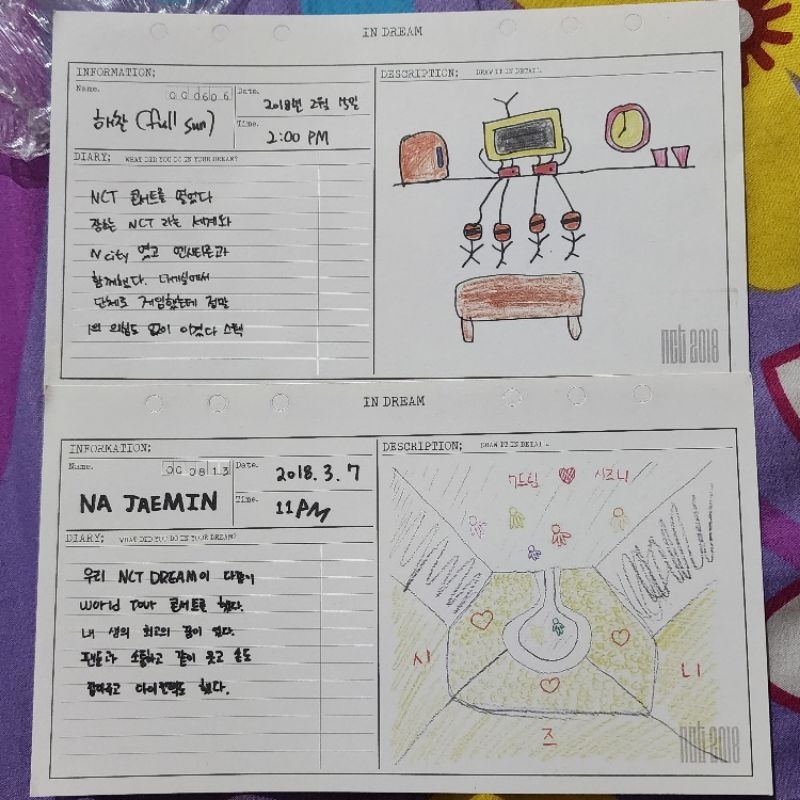 IN DREAM
INFORMATION:
Name.
000606
해찬 (full sun)
Date.
2018년 2월 15일
Time.
2:00 PM
DIARY: WHAT DID YOU DO IN YOUR DREAM?
NCT 콘서트를 열었다
장소는 NCT 라는 세계와
N city 였고 엔시티즌과
함께했다. 대기실에서
단체로 게임했는데 정말
1의 의심도 없이 이겼다
DESCRIPTION: DRAW IT IN DETAIL.
nct 2018
IN DREAM
INFORMATION:
Name.
000813
NA JAEMIN
Date.
2018. 3. 7
Time.
11PM
DIARY: WHAT DID YOU DO IN YOUR DREAM?
우리 NCT DREAM이 다같이
World Tour 콘서트를 했다.
내 생의 최고의 꿈이 었다.
팬들과 소통하고 같이 웃고 손도
잡아주고 아이컨택도 했다.
DESCRIPTION: DRAW IT IN DETAIL.
7드림 ♥ 시즈니
시
즈
니
nct 2018